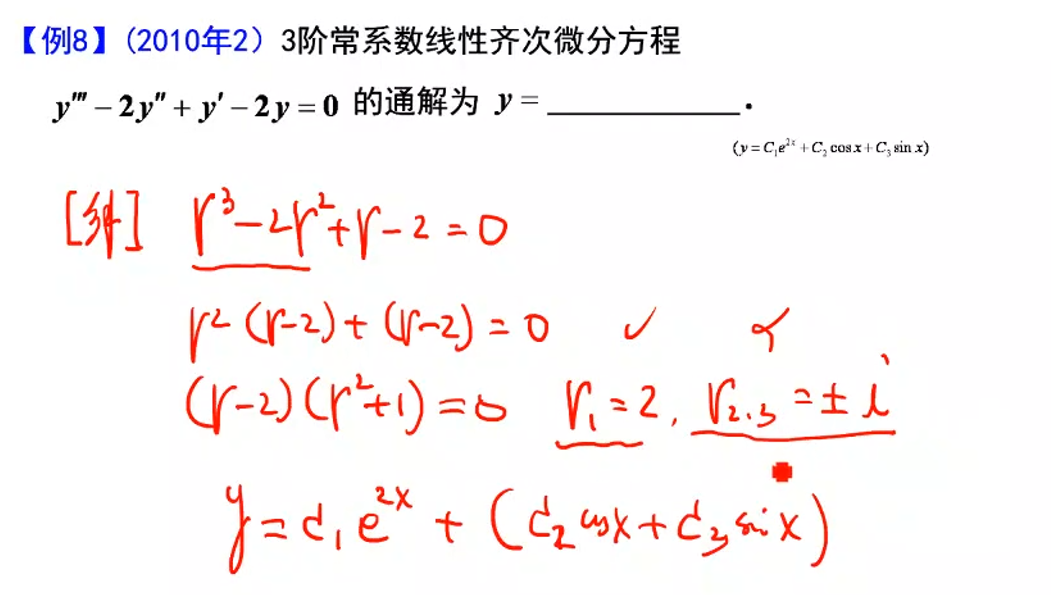 【例8】(2010年2) 3阶常系数线性齐次微分方程
y''' − 2y'' + y' − 2y = 0 的通解为 y = ____________.
(y = C₁e²ˣ + C₂ cos x + C₃ sin x)
[解] r³ − 2r² + r − 2 = 0
r² (r−2) + (r−2) = 0 ✓
(r−2)(r²+1) = 0 r₁ = 2, r₂.₃ = ± i
y = C₁ e²ˣ + (C₂ cos x + C₃ sin x)